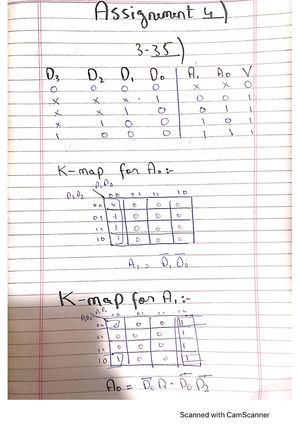 Assignment 4)
3-35)
D3 D2 D1 D0 A1 A0 V
0 0 0 0 x x 0
x x x 1 0 0 1
x x 1 0 0 1 1
x 1 0 0 1 0 1
1 0 0 0 1 1 1
K-map for A0:-
00 01 11 10
00 x 0 0 0
01 1 0 0 0
11 1 0 0 0
10 1 0 0 0
A1 = D̅1 D̅0
K-map for A1:-
0 0 1
0 0 0 1
0 0 0 1
10 1 0 0 1
A0 =
Scanned with CamScanner